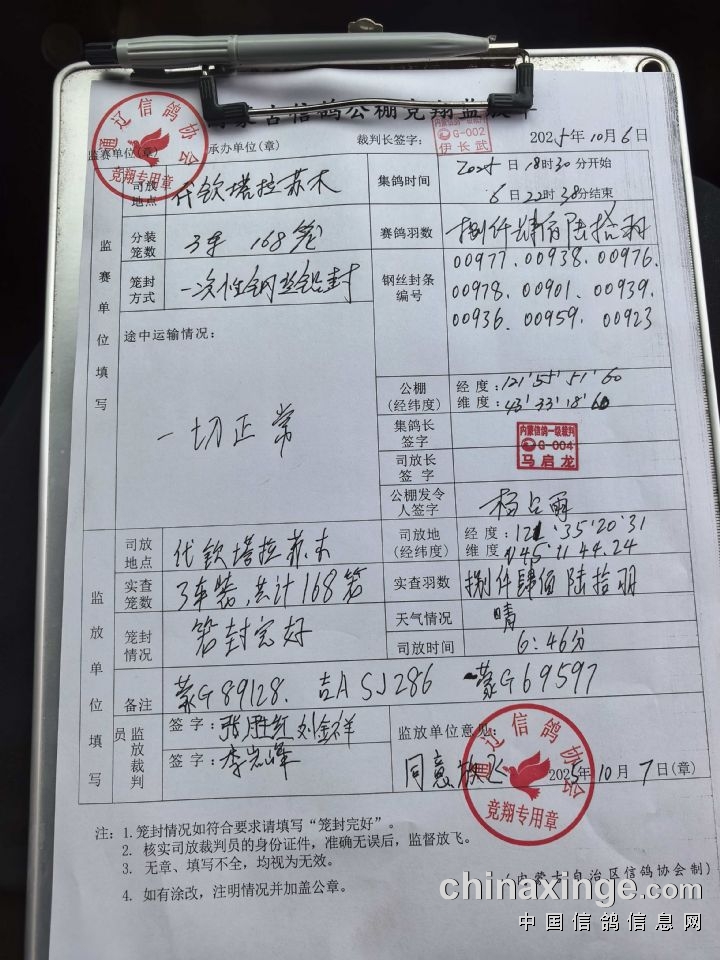 内蒙古信鸽公棚竞翔监放卡
通辽信鸽协会
竞翔专用章
监赛单位(章) 承办单位(章) 裁判长签字: G-002 伊长武 2025年10月6日
监赛单位填写
司放地点 代钦塔拉苏木 集鸽时间 2025 日18时30分开始
6日22时38分结束
分装笼数 3车 168笼 赛鸽羽数 捌仟肆佰陆拾羽
笼封方式 一次性钢丝铅封 钢丝封条编号 00977、00938、00976、
00978、00901、00939、
00936、00959、00923
途中运输情况:
一切正常
公棚(经纬度) 经度:121°55'51"60
维度:43°33'18"60
集鸽长签字 内蒙信鸽一级裁判 G-004 马启龙
司放长签字
公棚发令人签字 杨占雨
监放单位填写
司放地点 代钦塔拉苏木 司放地(经纬度) 经度:121°35'20"31
维度 45 11 44.24
实查笼数 3车装,共计168笼 实查羽数 捌仟肆佰陆拾羽
笼封情况 笼封完好 天气情况 晴
司放时间 6:46分
备注 蒙G89128、吉ASJ286 蒙G69597
监放裁判员 签字: 刘金祥 监放单位意见:
签字:李岩峰 同意放飞 2025年10月7日(章)
通辽信鸽协会
竞翔专用章
注: 1.笼封情况如符合要求请填写“笼封完好”。
2. 核实司放裁判员的身份证件,准确无误后,监督放飞。
3. 无章、填写不全,均视为无效。
4. 如有涂改,注明情况并加盖公章。
(内蒙古自治区信鸽协会制)
chinaxinge.com
中国信鸽信息网